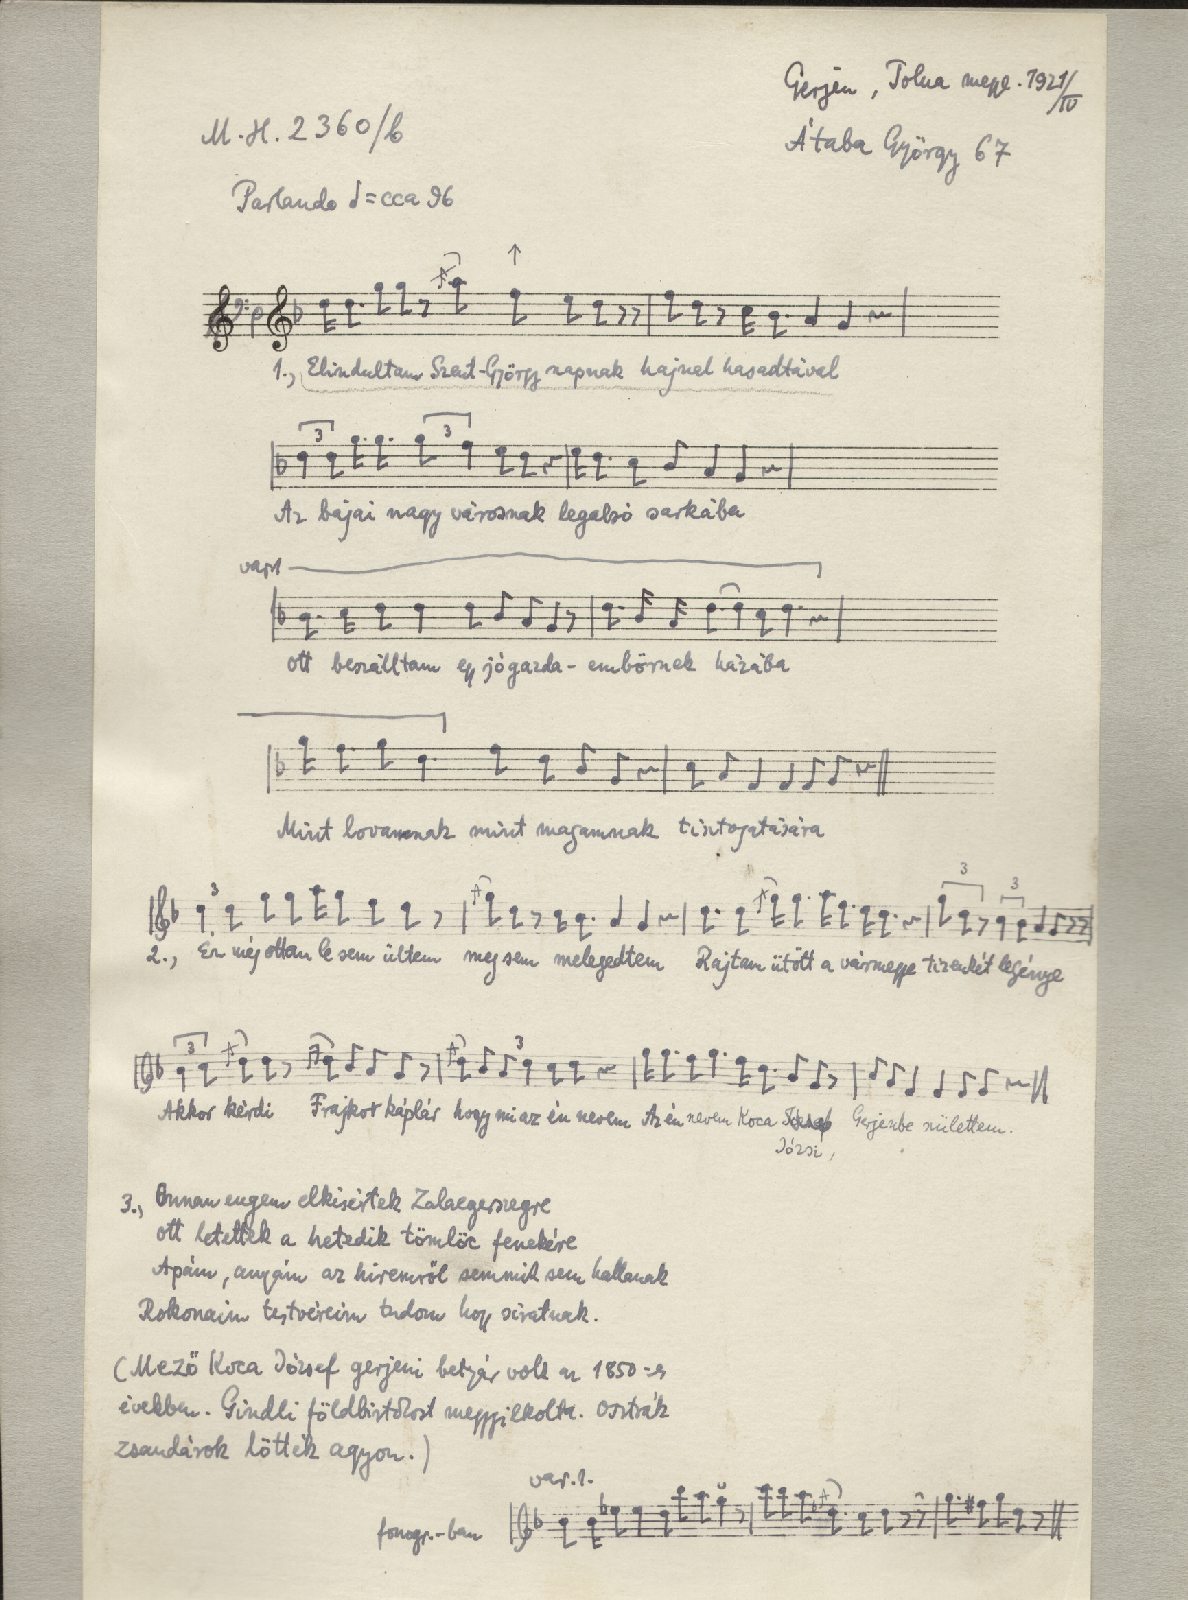 Gerjén, Tolna megye. 1921/IV
M.H. 2360/b
Átaba György 67
Parlando = cca 96
1., Elindultam Szent-György napnak hajnal hasadtával
3 3
Az bajai nagy városnak legalsó sarkába
var1
ott beszálltam egy jógazda-embörnek házába
Mint lovamnak mint magamnak tisztogatására
3 3 3
2., Én még ottan le sem ültem meg sem melegedtem Rajtam ütött a vármegye tizenkét legénye
3 3
Akkor kérdi Frajkor káplár hogy mi az én nevem Az én nevem Koca József Gerjenbe születtem.
Józsi,
3., Onnan engem elkisértek Zalaegerszegre
ott letettek a hetedik tömlöc fenekére
Apám, anyám az hiremről semmit sem hallanak
Rokonaim testvéreim tudom hogy siratnak.
(Mező Koca József gerjeni betyár volt az 1850-es
években. Gindli földbirtokost meggyilkolta. Osztrák
zsandárok lőtték agyon.)
var.1.
fonogr.-ban